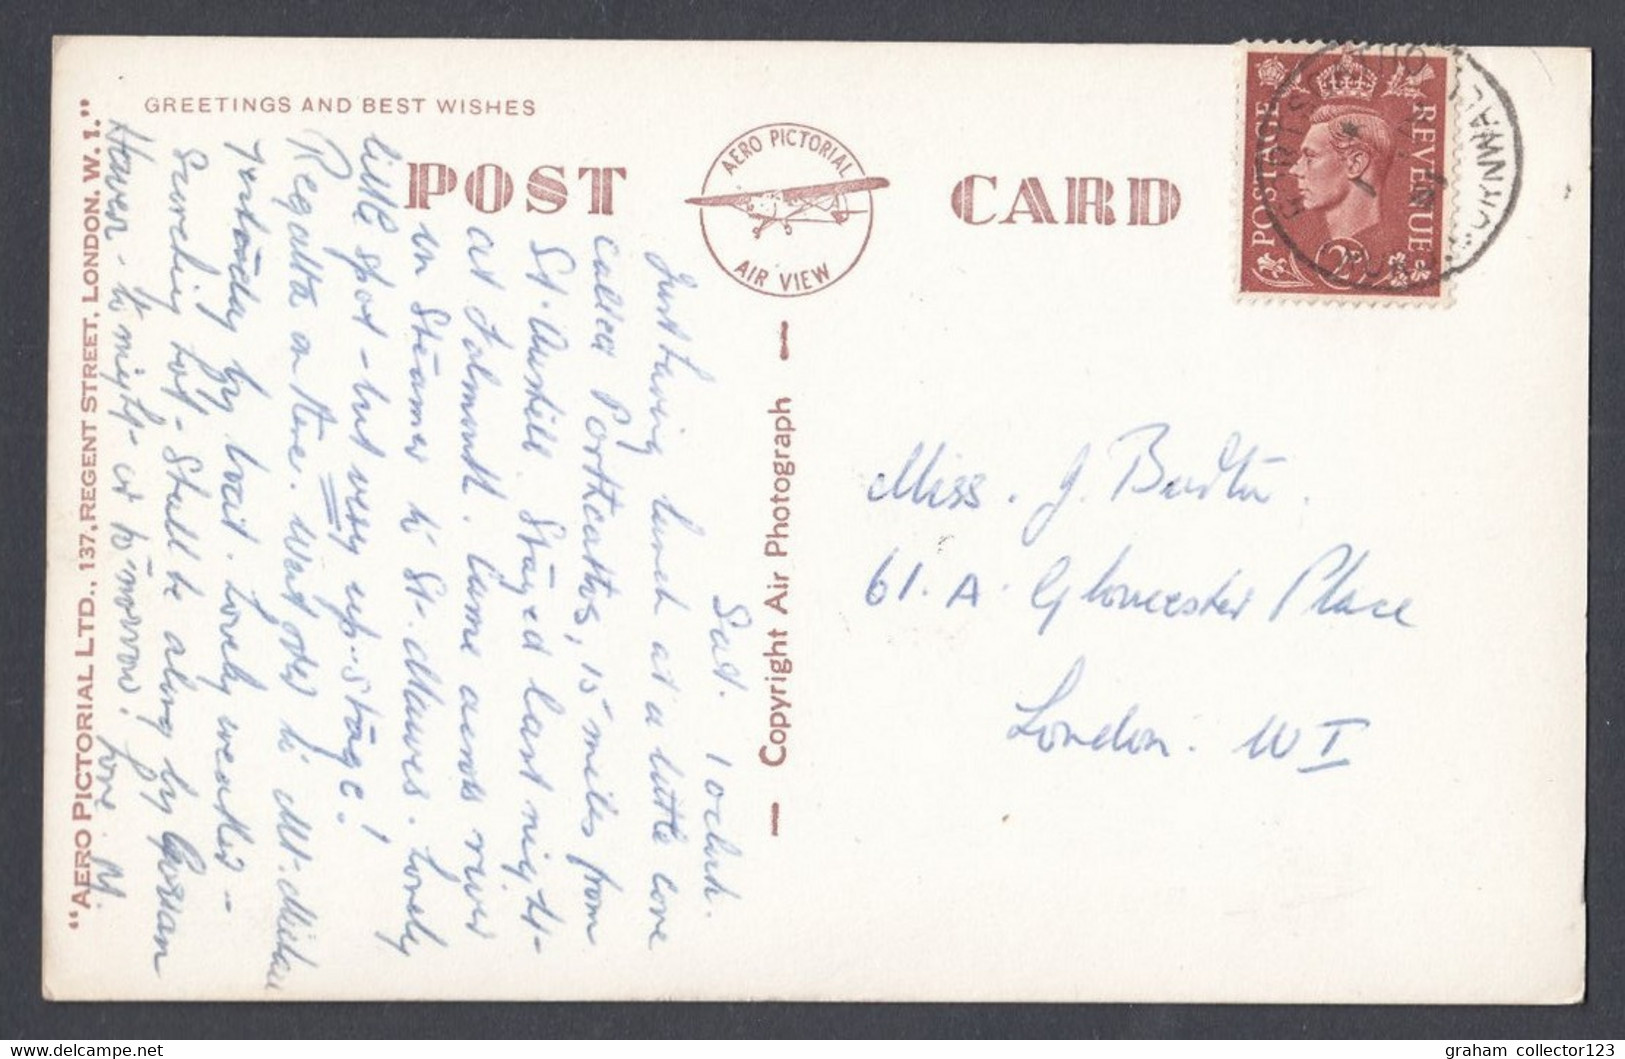 GREETINGS AND BEST WISHES
POST CARD
AERO PICTORIAL
AIR VIEW
POSTAGE REVENUE
2D
CORNWALL
"AERO PICTORIAL LTD., 137, REGENT STREET, LONDON. W. 1."
— Copyright Air Photograph —
Sat. 1 oclock.
Just having lunch at a little cove
called Portheattos, 15 miles from
St. Austell. Stayed last night
at Falmouth. Came across river
in Steamer to St. Mawes. Lovely
little spot - but very up-stage!
Regatta on there. Went over to
yesterday by boat. Lovely weather -
Scorching hot - Shall be along by
Haven - to night or to-morrow! Love. M.
Miss. J.
61. A. Gloucester Place
London. W I
graham collector123